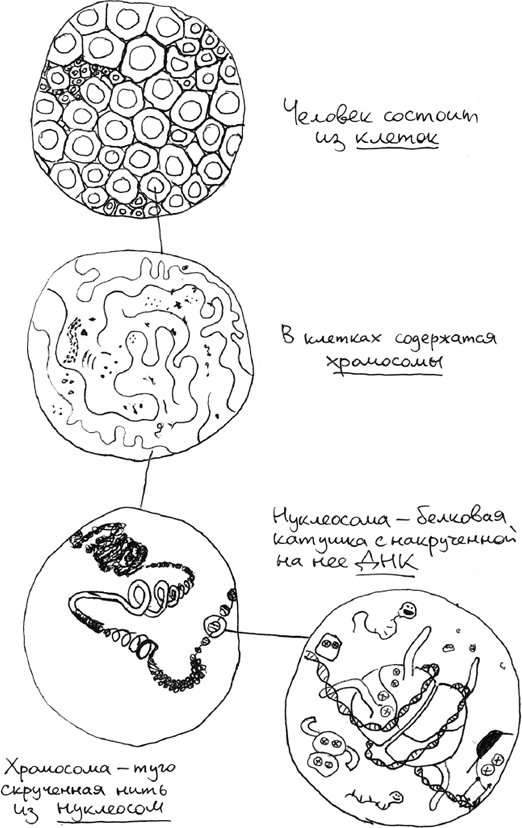 Человек состоит
из клеток
В клетках содержатся
хромосомы
Нуклеосома – белковая
катушка с накрученной
на нее ДНК
Хромосома – туго
скрученная нить
из нуклеосом